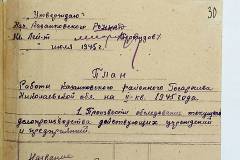 30
„Утверждаю"
Нач. Казанковского
Лей-т
" июля 1945 г.
План
Работы Казанковского районного Госархива
Николаевской обл. на кв. 1945 года.
1. Произвести обследование текущего
делопроизводства действующих учреждений
и предприятий.
Название